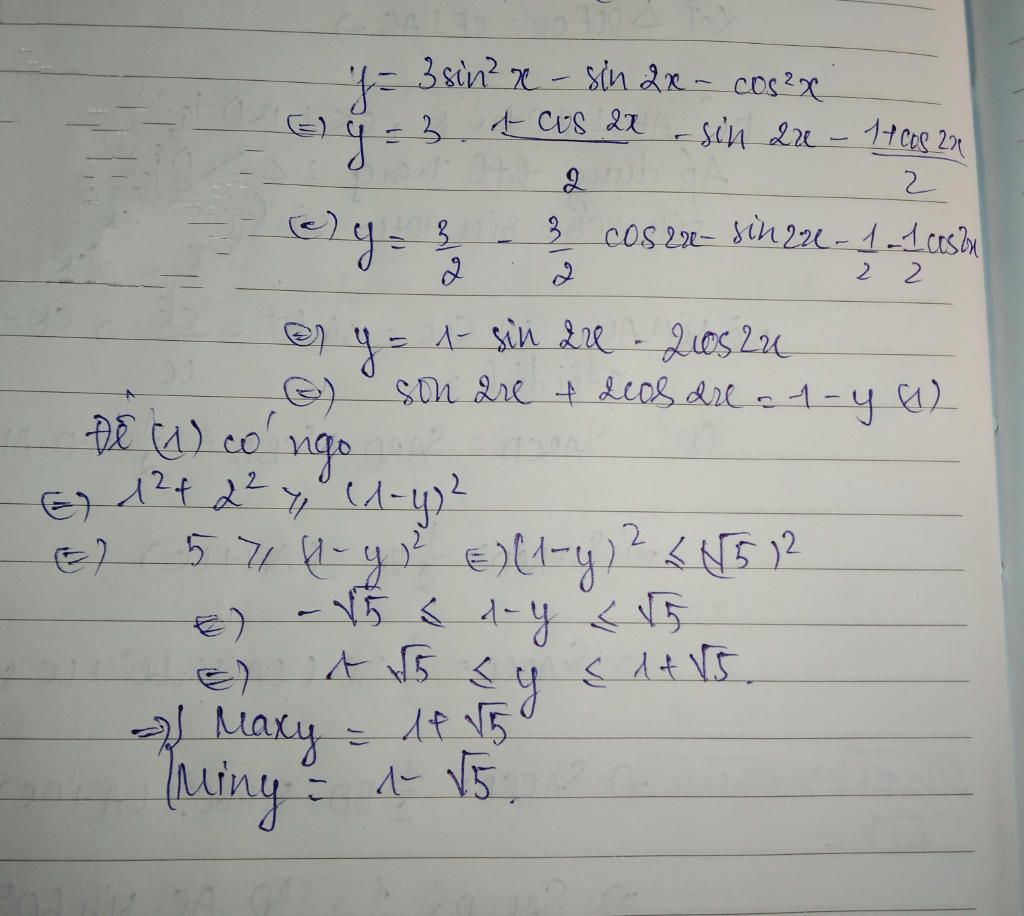 y = 3sin² x - sin 2x - cos² x
(=) y = 3 . \frac{1 - cos 2x}{2} - sin 2x - \frac{1+cos 2x}{2}
(=) y = \frac{3}{2} - \frac{3}{2} cos 2x - sin 2x - \frac{1}{2} - \frac{1}{2} cos2x
(=) y = 1 - sin 2x - 2cos2x
(=) son 2x + 2cos 2x = 1 - y (1)
Để (1) có ngo
(=) 1² + 2² ⩾ (1-y)²
(=) 5 ⩾ (1-y)² (=) (1-y)² ⩽ (√5)²
(=) -√5 ⩽ 1-y ⩽ √5
(=) 1-√5 ⩽ y ⩽ 1+√5.
=> { Maxy = 1+√5
Miny = 1-√5.